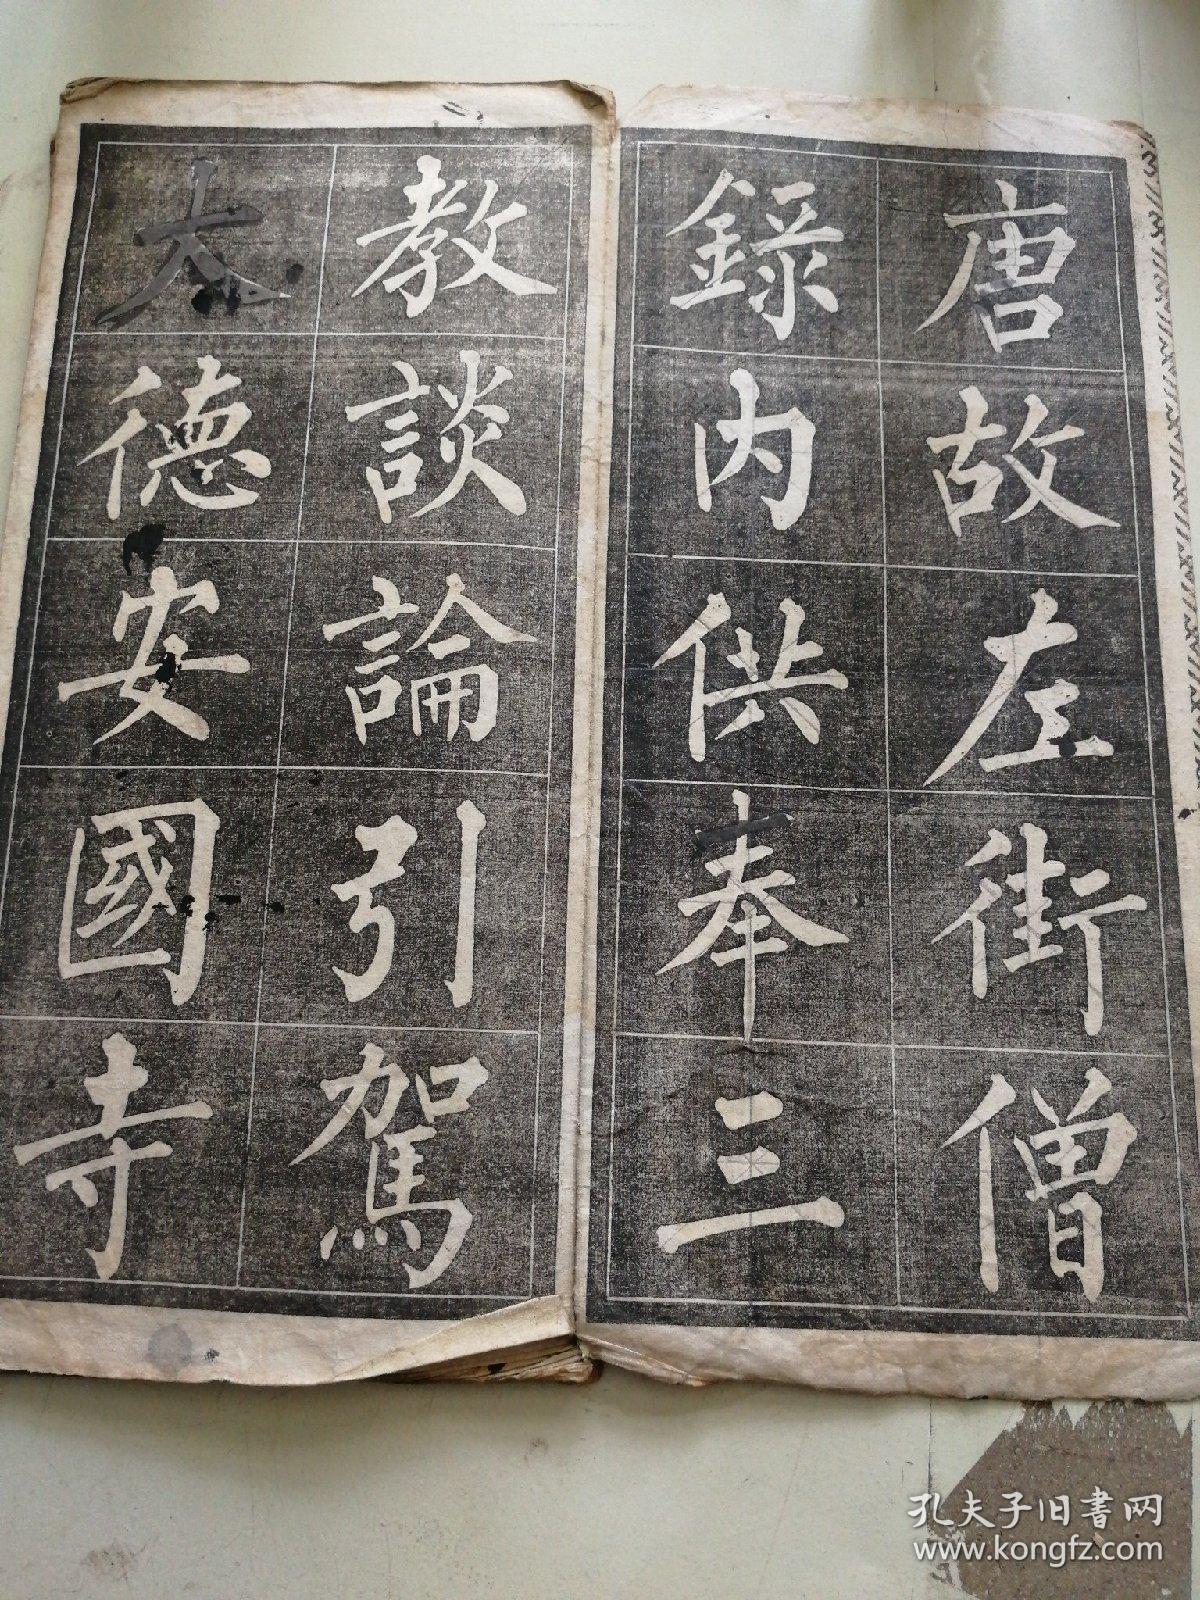 唐故左街僧
錄内供奉三
教談論引駕
大德安國寺
孔夫子旧書网
www.kongfz.com